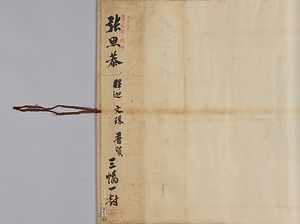 張思恭 釋迦 文殊 普賢 三幅一対